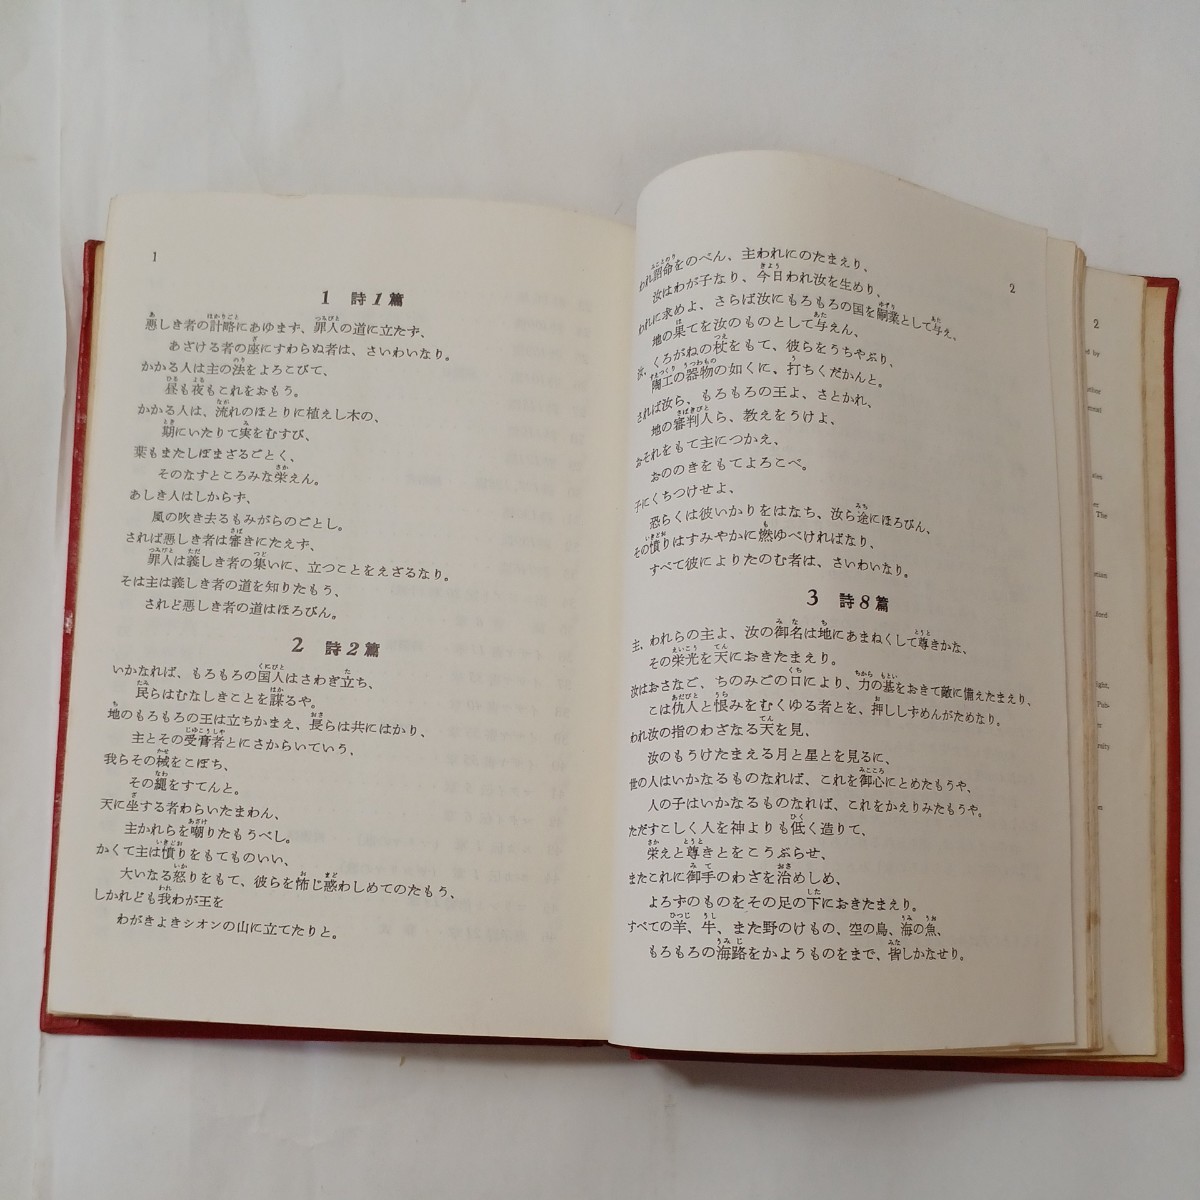 1
1 詩1篇
悪しき者の計略にあゆまず、罪人の道に立たず、
あざける者の座にすわらぬ者は、さいわいなり。
かかる人は主の法をよろこびて、
昼も夜もこれをおもう。
かかる人は、流れのほとりに植えし木の、
期にいたりて実をむすび、
葉もまたしぼまざるごとく、
そのなすところみな栄えん。
あしき人はしからず、
風の吹き去るもみがらのごとし。
されば悪しき者は審きにたえず、
罪人は義しき者の集いに、立つことをえざるなり。
そは主は義しき者の道を知りたもう、
されど悪しき者の道はほろびん。
2 詩2篇
いかなれば、もろもろの国人はさわぎ立ち、
民らはむなしきことを謀るや。
地のもろもろの王は立ちかまえ、長らは共にはかり、
主とその受膏者とにさからいていう、
我らその械をこぼち、
その縄をすてんと。
天に坐する者わらいたまわん、
主かれらを嘲りたもうべし。
かくて主は憤りをもてものいい、
大いなる怒りをもて、彼らを怖じ惑わしめてのたもう、
しかれども我わが王を
わがきよきシオンの山に立てたりと。
2
われ詔命をのべん、主われにのたまえり、
汝はわが子なり、今日われ汝を生めり、
われに求めよ、さらば汝にもろもろの国を嗣業として与え、
地の果てを汝のものとして与えん、
汝、くろがねの杖をもて、彼らをうちやぶり、
陶工の器物の如くに、打ちくだかんと。
されば汝ら、もろもろの王よ、さとかれ、
地の審判人ら、教えをうけよ、
おそれをもて主につかえ、
おののきをもてよろこべ。
子にくちつけせよ、
恐らくは彼いかりをはなち、汝ら途にほろびん、
その憤りはすみやかに燃ゆべければなり、
すべて彼によりたのむ者は、さいわいなり。
3 詩8篇
主、われらの主よ、汝の御名は地にあまねくして尊きかな、
その栄光を天におきたまえり。
汝はおさなご、ちのみごの口により、力の基をおきて敵に備えたまえり、
こは仇人と恨みをむくゆる者とを、押ししずめんがためなり。
われ汝の指のわざなる天を見、
汝のもうけたまえる月と星とを見るに、
世の人はいかなるものなれば、これを御心にとめたもうや、
人の子はいかなるものなれば、これをかえりみたもうや。
ただすこしく人を神よりも低く造りて、
栄えと尊きとをこうぶらせ、
またこれに御手のわざを治めしめ、
よろずのものをその足の下におきたまえり。
すべての羊、牛、また野のけもの、空の鳥、海の魚、
もろもろの海路をかようものをまで、皆しかなせり。
2